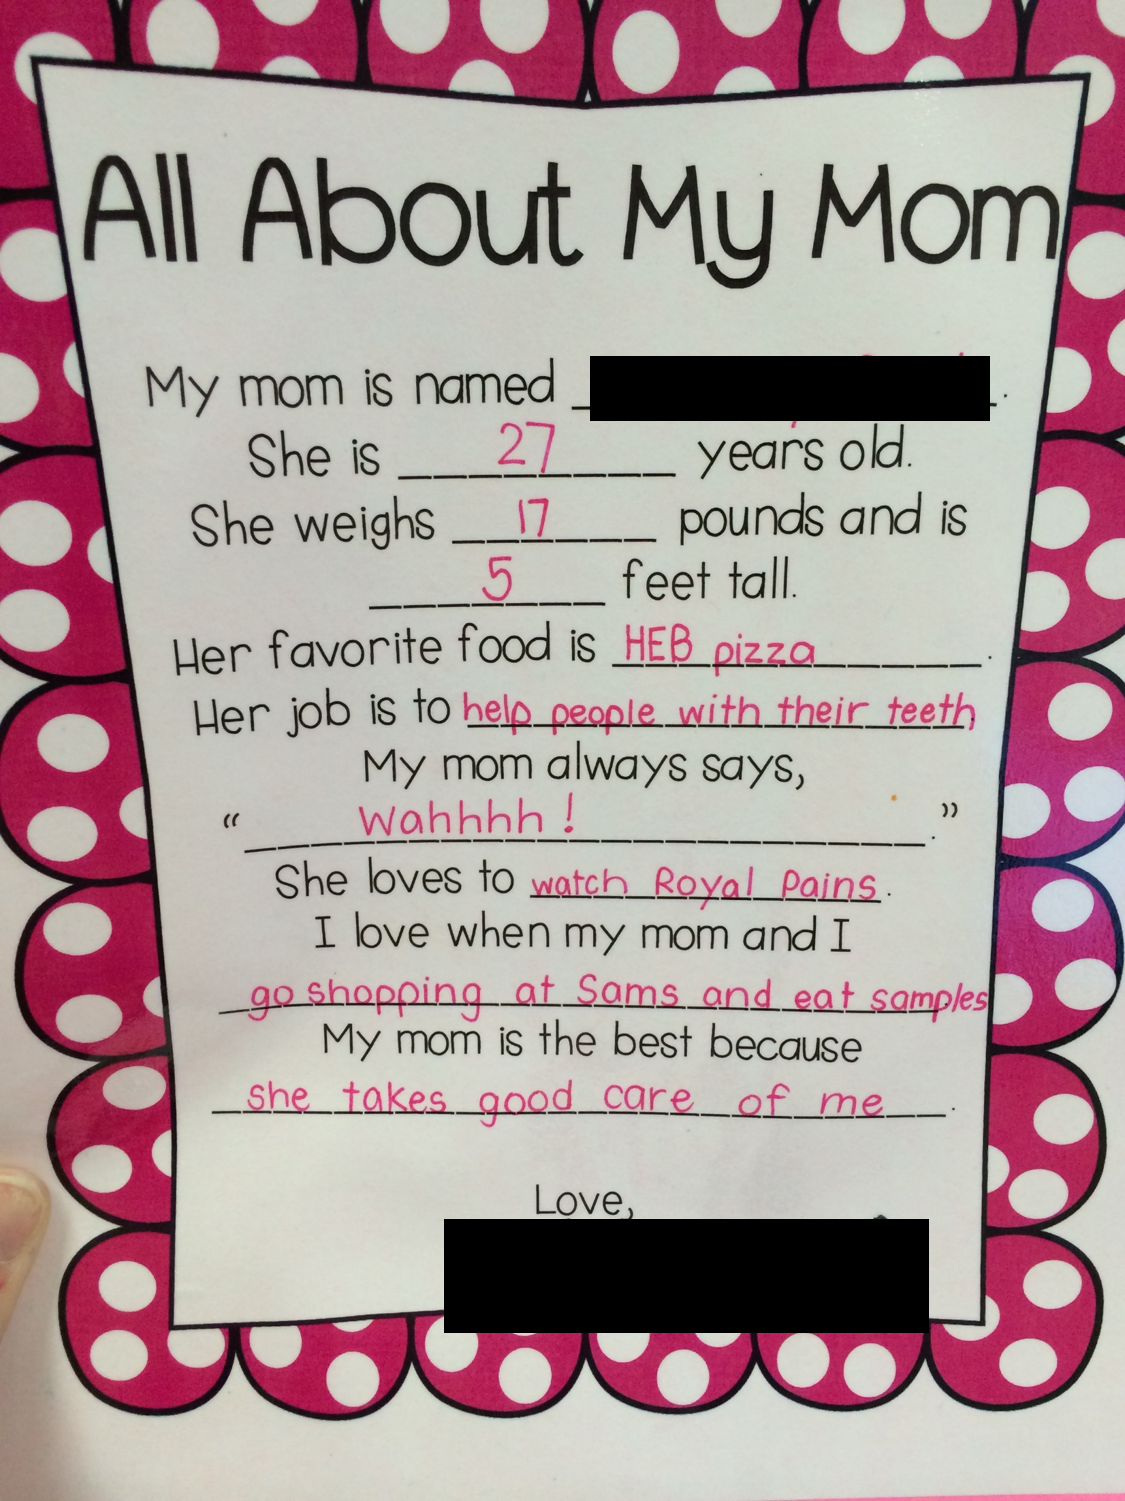 All About My Mom
My mom is named
She is 27 years old.
She weighs 17 pounds and is
5 feet tall.
Her favorite food is HEB pizza.
Her job is to help people with their teeth
My mom always says,
"Wahhhh!."
She loves to watch Royal Pains.
I love when my mom and I
go shopping at Sams and eat samples
My mom is the best because
she takes good care of me.
Love,